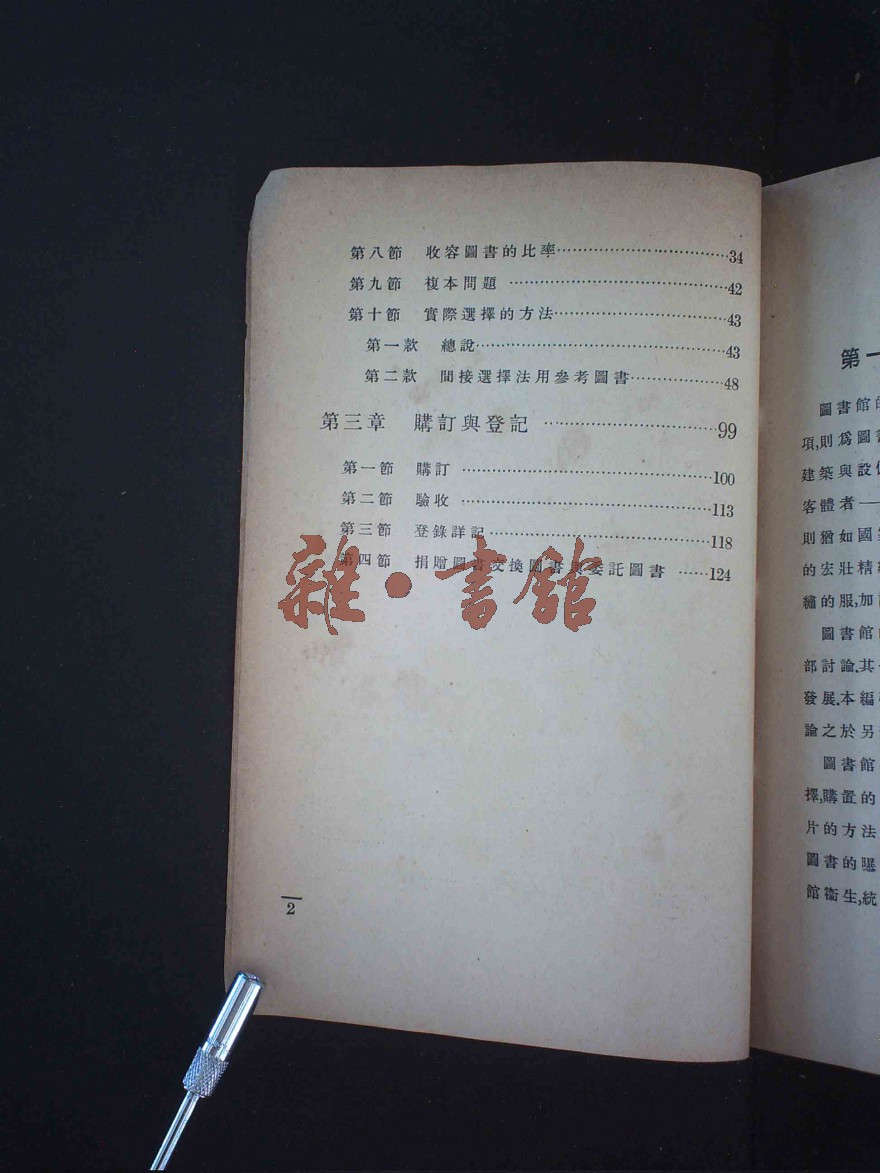 第八節 收容圖書的比率……34
第九節 複本問題……42
第十節 實際選擇的方法……43
第一款 總說……43
第二款 間接選擇法用參考圖書……48
第三章 購訂與登記……99
第一節 購訂……100
第二節 驗收……113
第三節 登錄詳記……118
第四節 捐贈圖書交換圖書與委託圖書……124
雜·書館
2
第一
圖書館的
項,則爲圖書
建築與設備
客體者—
則猶如國
的宏壯精
繡的服,加
圖書館
部討論.其
發展.本編
論之於另
圖書館
擇,購置的
片的方法
圖書的曝
館衞生,統